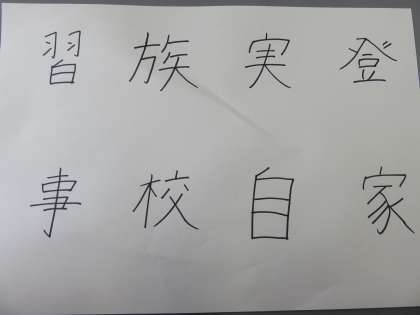 習族実登
事校自家